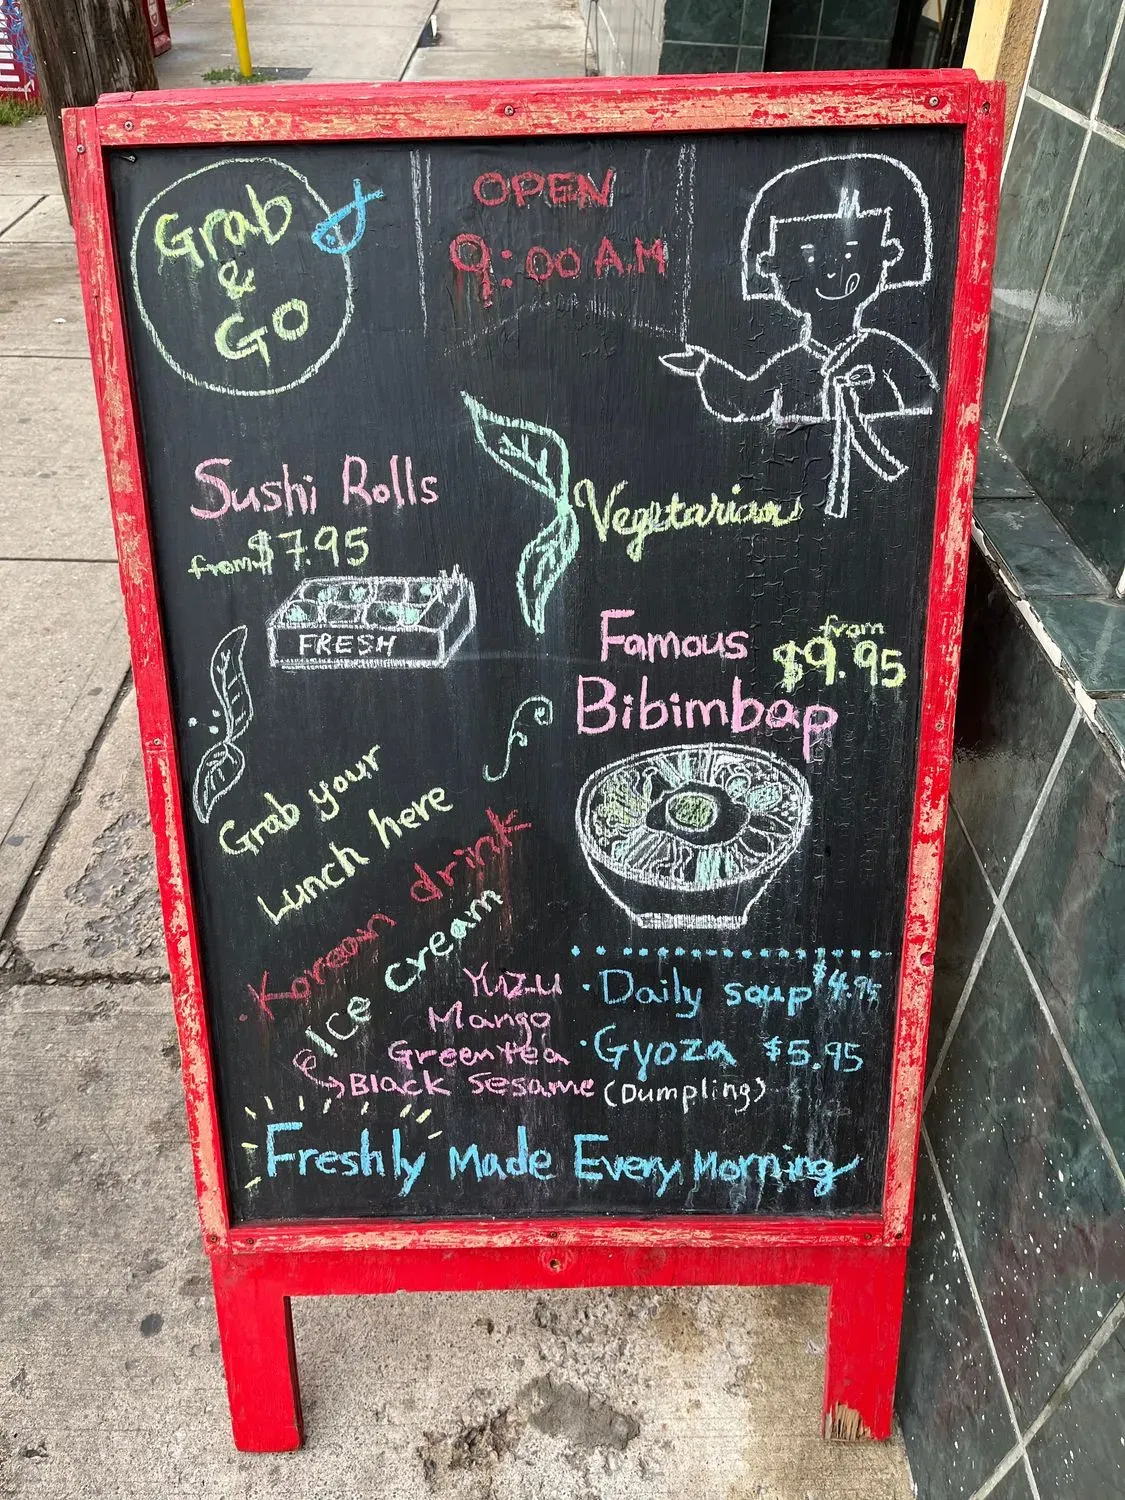 Grab
&
Go
OPEN
9:00 A.M
Sushi Rolls
from $7.95
FRESH
Vegetarian
Famous
from
$9.95
Bibimbap
Grab your
Lunch here
·Korean drink
·Ice cream
Yuzu
Mango
Green tea
Black Sesame
·Daily soup $4.95
·Gyoza $5.95
(Dumpling)
Freshly Made Every Morning